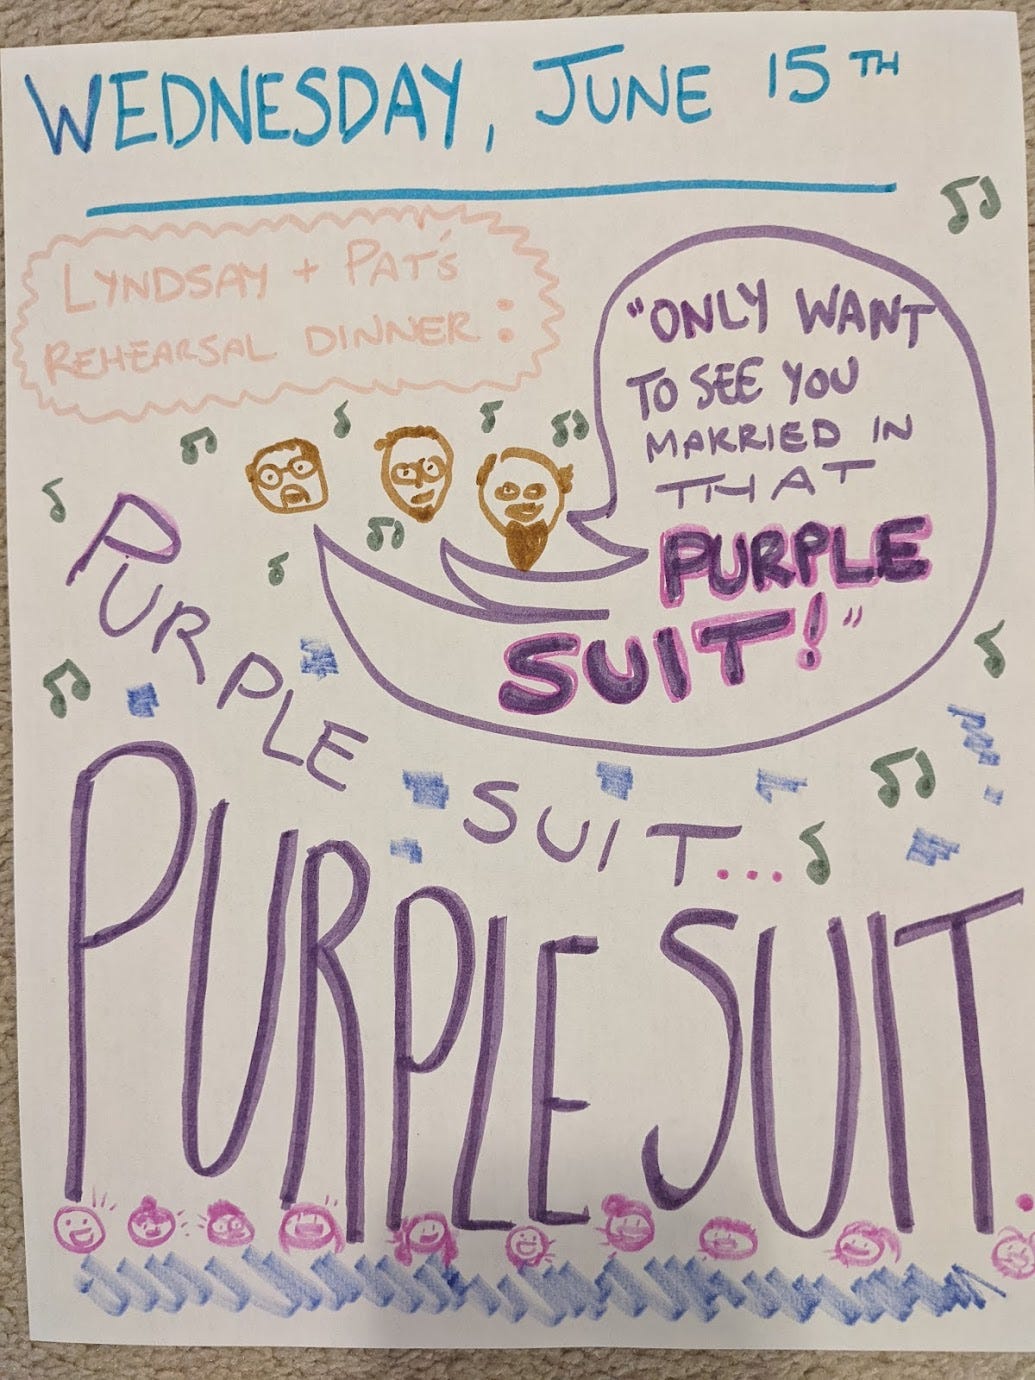 WEDNESDAY, JUNE 15TH
LYNDSAY + PAT'S
REHEARSAL DINNER :
"ONLY WANT
TO SEE YOU
MARRIED IN
THAT
PURPLE
SUIT!"
PURPLE
SUIT...
PURPLE SUIT.